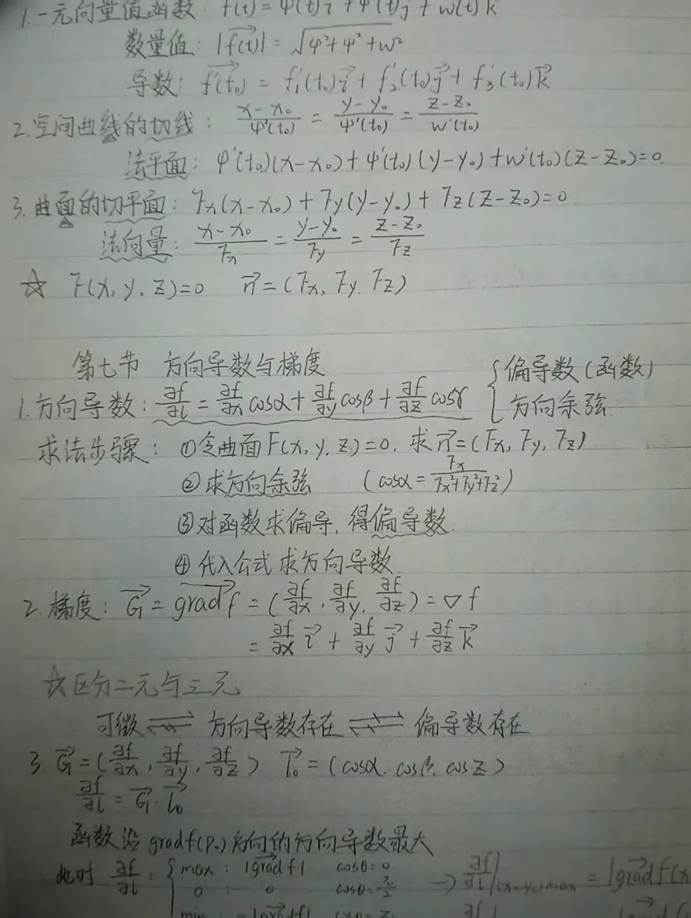 1.一元向量值函数 f(t)=φ(t)i+ψ(t)j+w(t)k
数量值: |f(t)|=√φ²+ψ²+w²
导数: f'(t₀)=f₁'(t₀)i+f₂'(t₀)j+f₃'(t₀)k
2.空间曲线的切线: (x-x₀)/φ'(t₀)=(y-y₀)/ψ'(t₀)=(z-z₀)/w'(t₀)
法平面: φ'(t₀)(x-x₀)+ψ'(t₀)(y-y₀)+w'(t₀)(z-z₀)=0.
3.曲面的切平面: Fx(x-x₀)+Fy(y-y₀)+Fz(z-z₀)=0
法向量: (x-x₀)/Fx=(y-y₀)/Fy=(z-z₀)/Fz
☆ F(x,y,z)=0 n=(Fx,Fy,Fz)
第七节 方向导数与梯度
1.方向导数: ∂f/∂l=∂f/∂x cosα+∂f/∂y cosβ+∂f/∂z cosγ { 偏导数(函数)
方向余弦
求法步骤: ①令曲面F(x,y,z)=0, 求n=(Fx,Fy,Fz)
②求方向余弦 (cosα=Fx/Fx²+Fy²+Fz²)
③对函数求偏导,得偏导数
④代入公式求方向导数
2.梯度: G=grad f=(∂f/∂x,∂f/∂y,∂f/∂z)=▽f
=∂f/∂x i+∂f/∂y j+∂f/∂z k
☆区分二元与三元
可微⇌方向导数存在⇌偏导数存在
3 G=(∂f/∂x,∂f/∂y,∂f/∂z) l₀=(cosα,cosβ,cosz)
∂f/∂l=G·l₀
函数沿gradf(P₀)方向的方向导数最大
此时 ∂f/∂l={ max: |grad f| cosθ=0
0: 0 cosθ=π/2
min